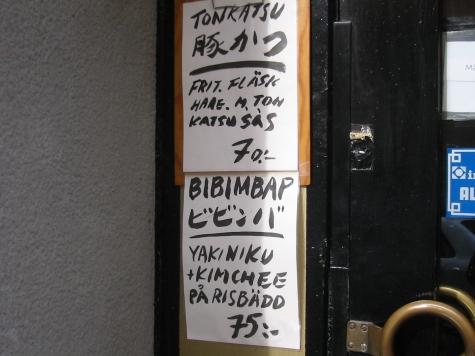 TONKATSU
豚かつ
FRIT. FLÄSK
HARE. M. TON
KATSU SÅS
70:-
BIBIMBAP
ビビンバ
YAKINIKU
+KIMCHEE
PÅ RISBÄDD
75:-